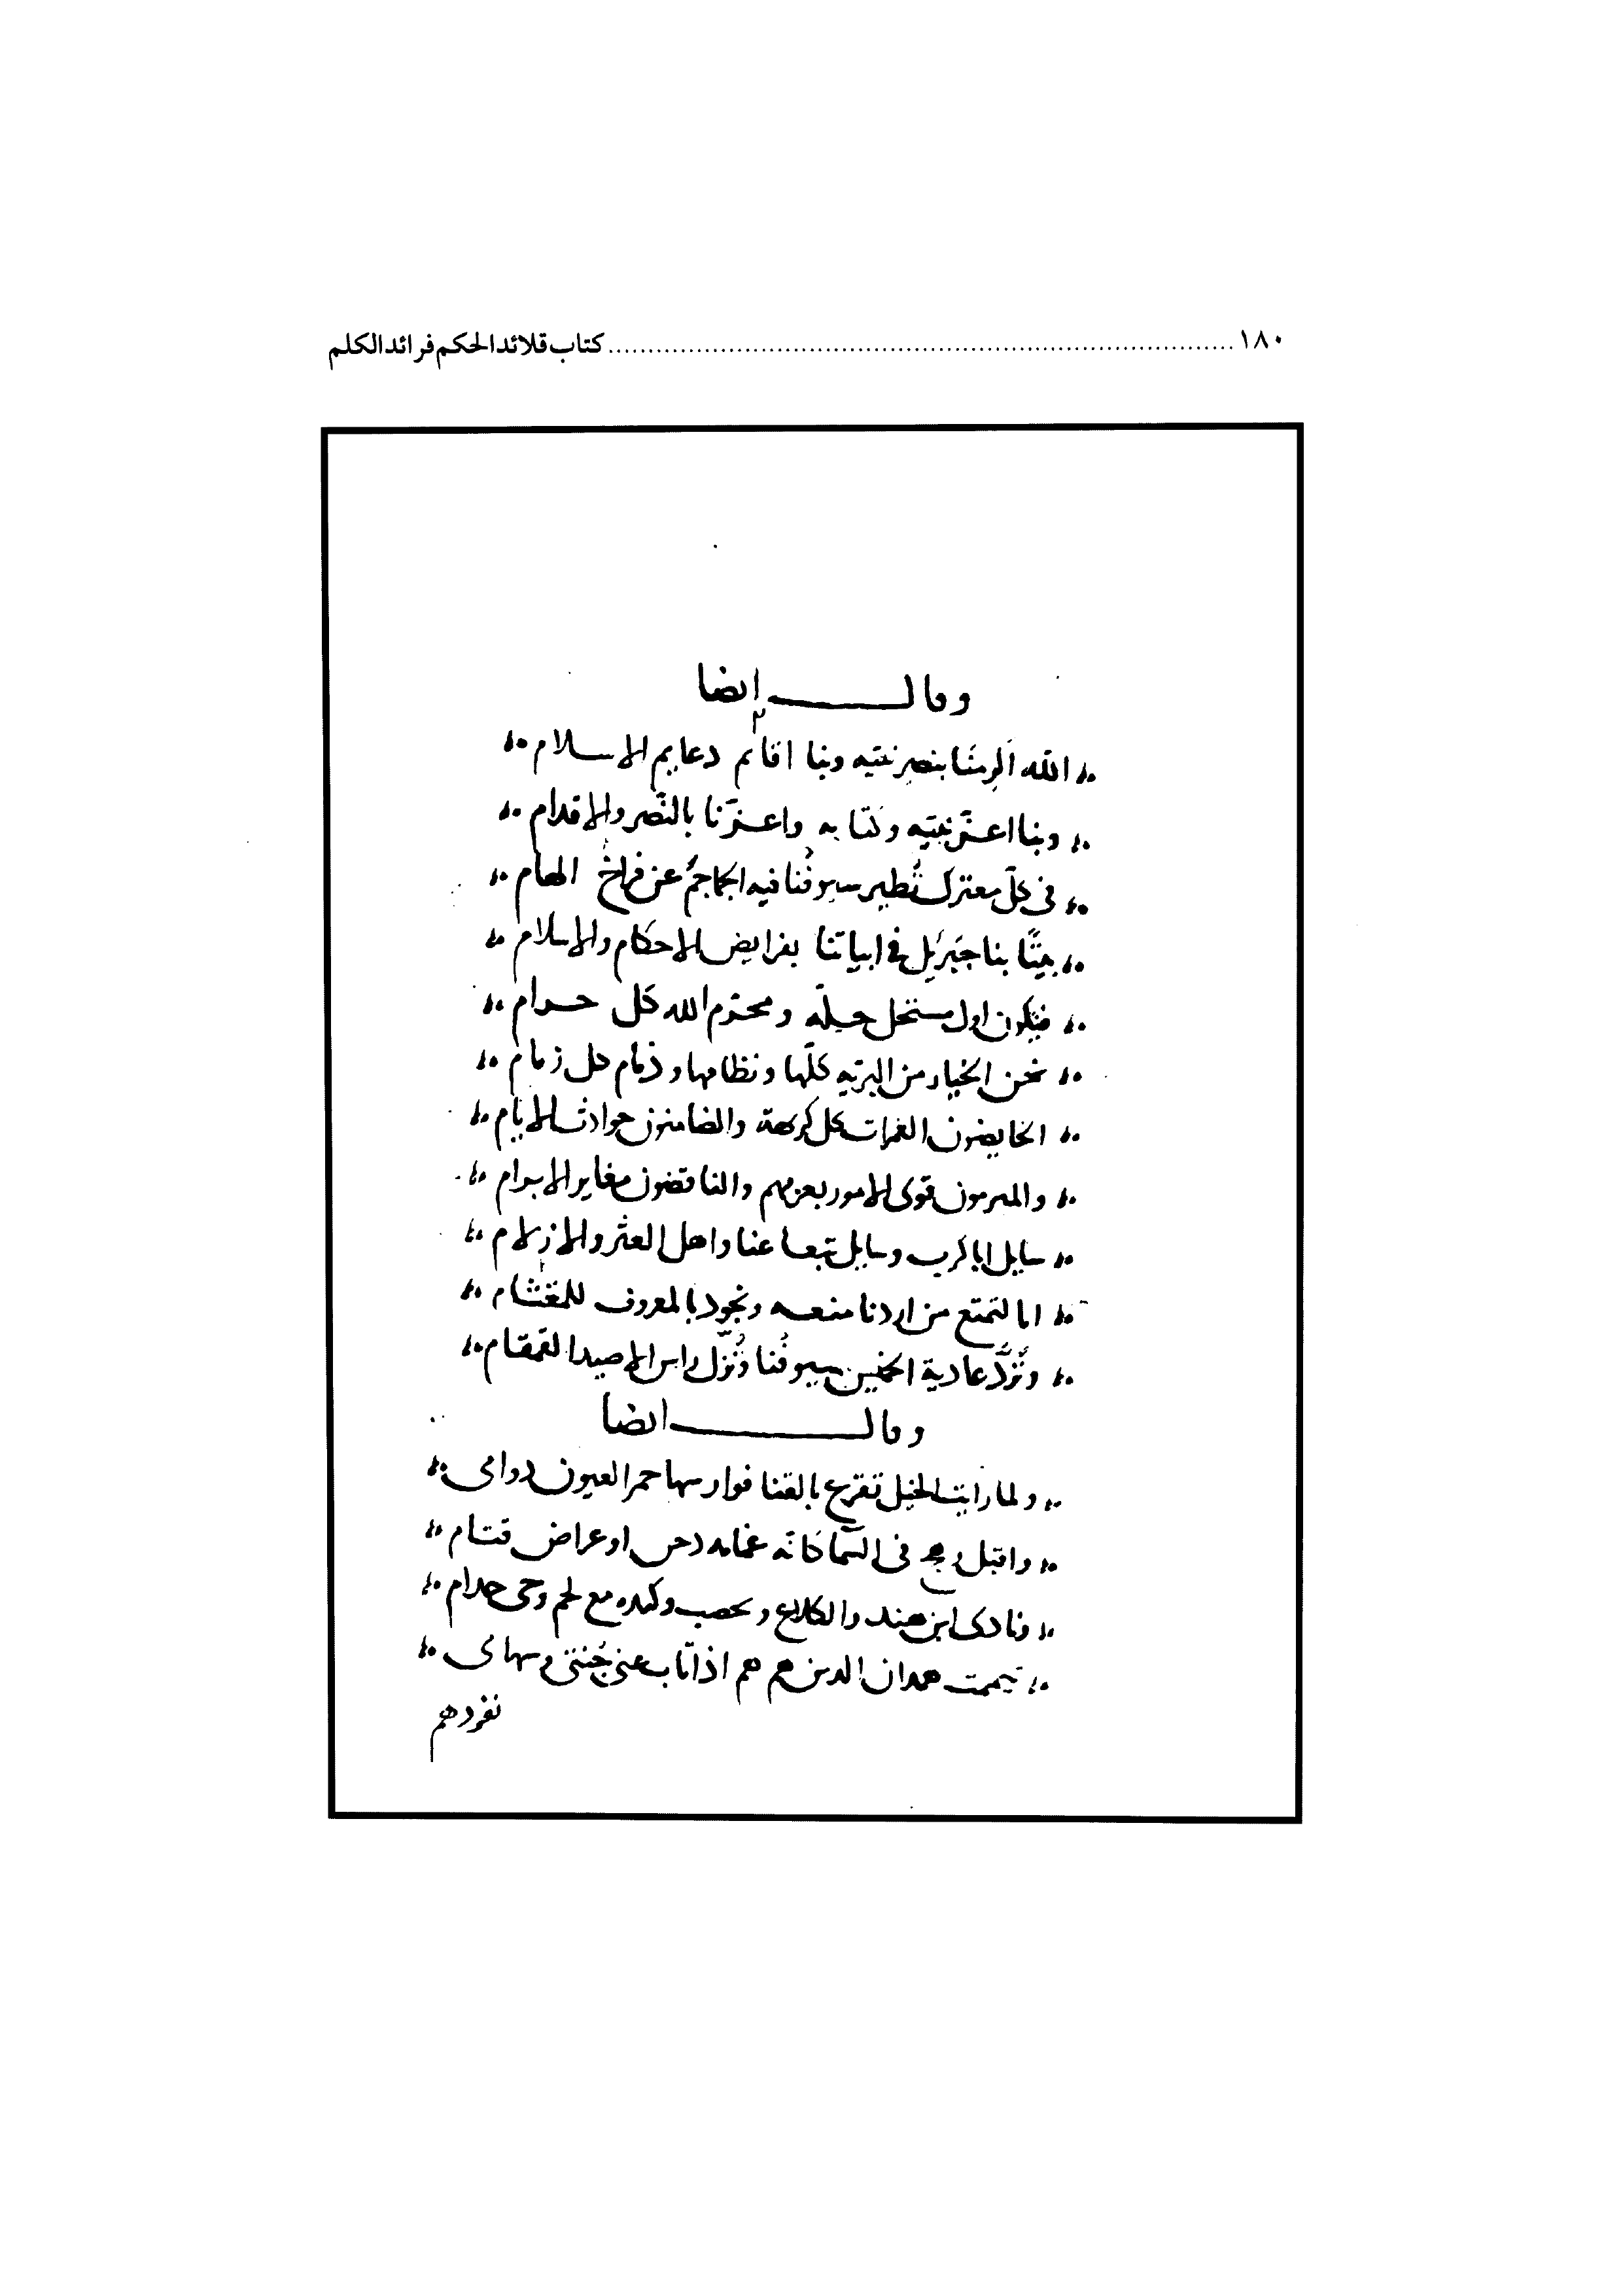 ١٨٠ ........ كتاب قلائد الحكم فرائد الكلم
وقال ايضا
الله اكرمنا بنصر نبيه وبنا اقام دعايم الاسلام
وبنا اعزّ نبيّه وكتابه واعزّنا بالنّصر والاقدام
فى كلّ معترك تُطير سيوفُنا فيه الجماجمُ عن فراخ الهام
بيتًا بنا جبريل فى ابياتنا بفرايض الاحكام والاسلام
فنكون اول مستحل حلّه ومحرّم الله كل حرام
نحن الخيار من البريه كلّها ونظامها وزمام كل زمام
الخايضون الغمرات كل كريهة والضامنون حوادث الايام
والمبرمون قوى الامور بعزمهم والناقضون مغاير الابرام
سايل ابا كرب وسايل تبعا عنا واهل العتر والازلام
انا لتمنع من اردنا منعه ونجود بالمعروف للمعتام
وتردّ عادية الخميس سيوفُنا وتُزل راس الاصيد القمقام
وقال ايضا
ولما رايت الخيل تقرع بالقنا فوارسها حمر العيون دوامى
واقبل رهج فى السّما كانّه غمامه دجن او عراض قتام
ونادى ابن هند والكلاع ويحصب وكنده مع لخم وحى جذام
تيممت همدان الدين هم هم اذا ناب عنى جُنتى وسهامى
نفردهم